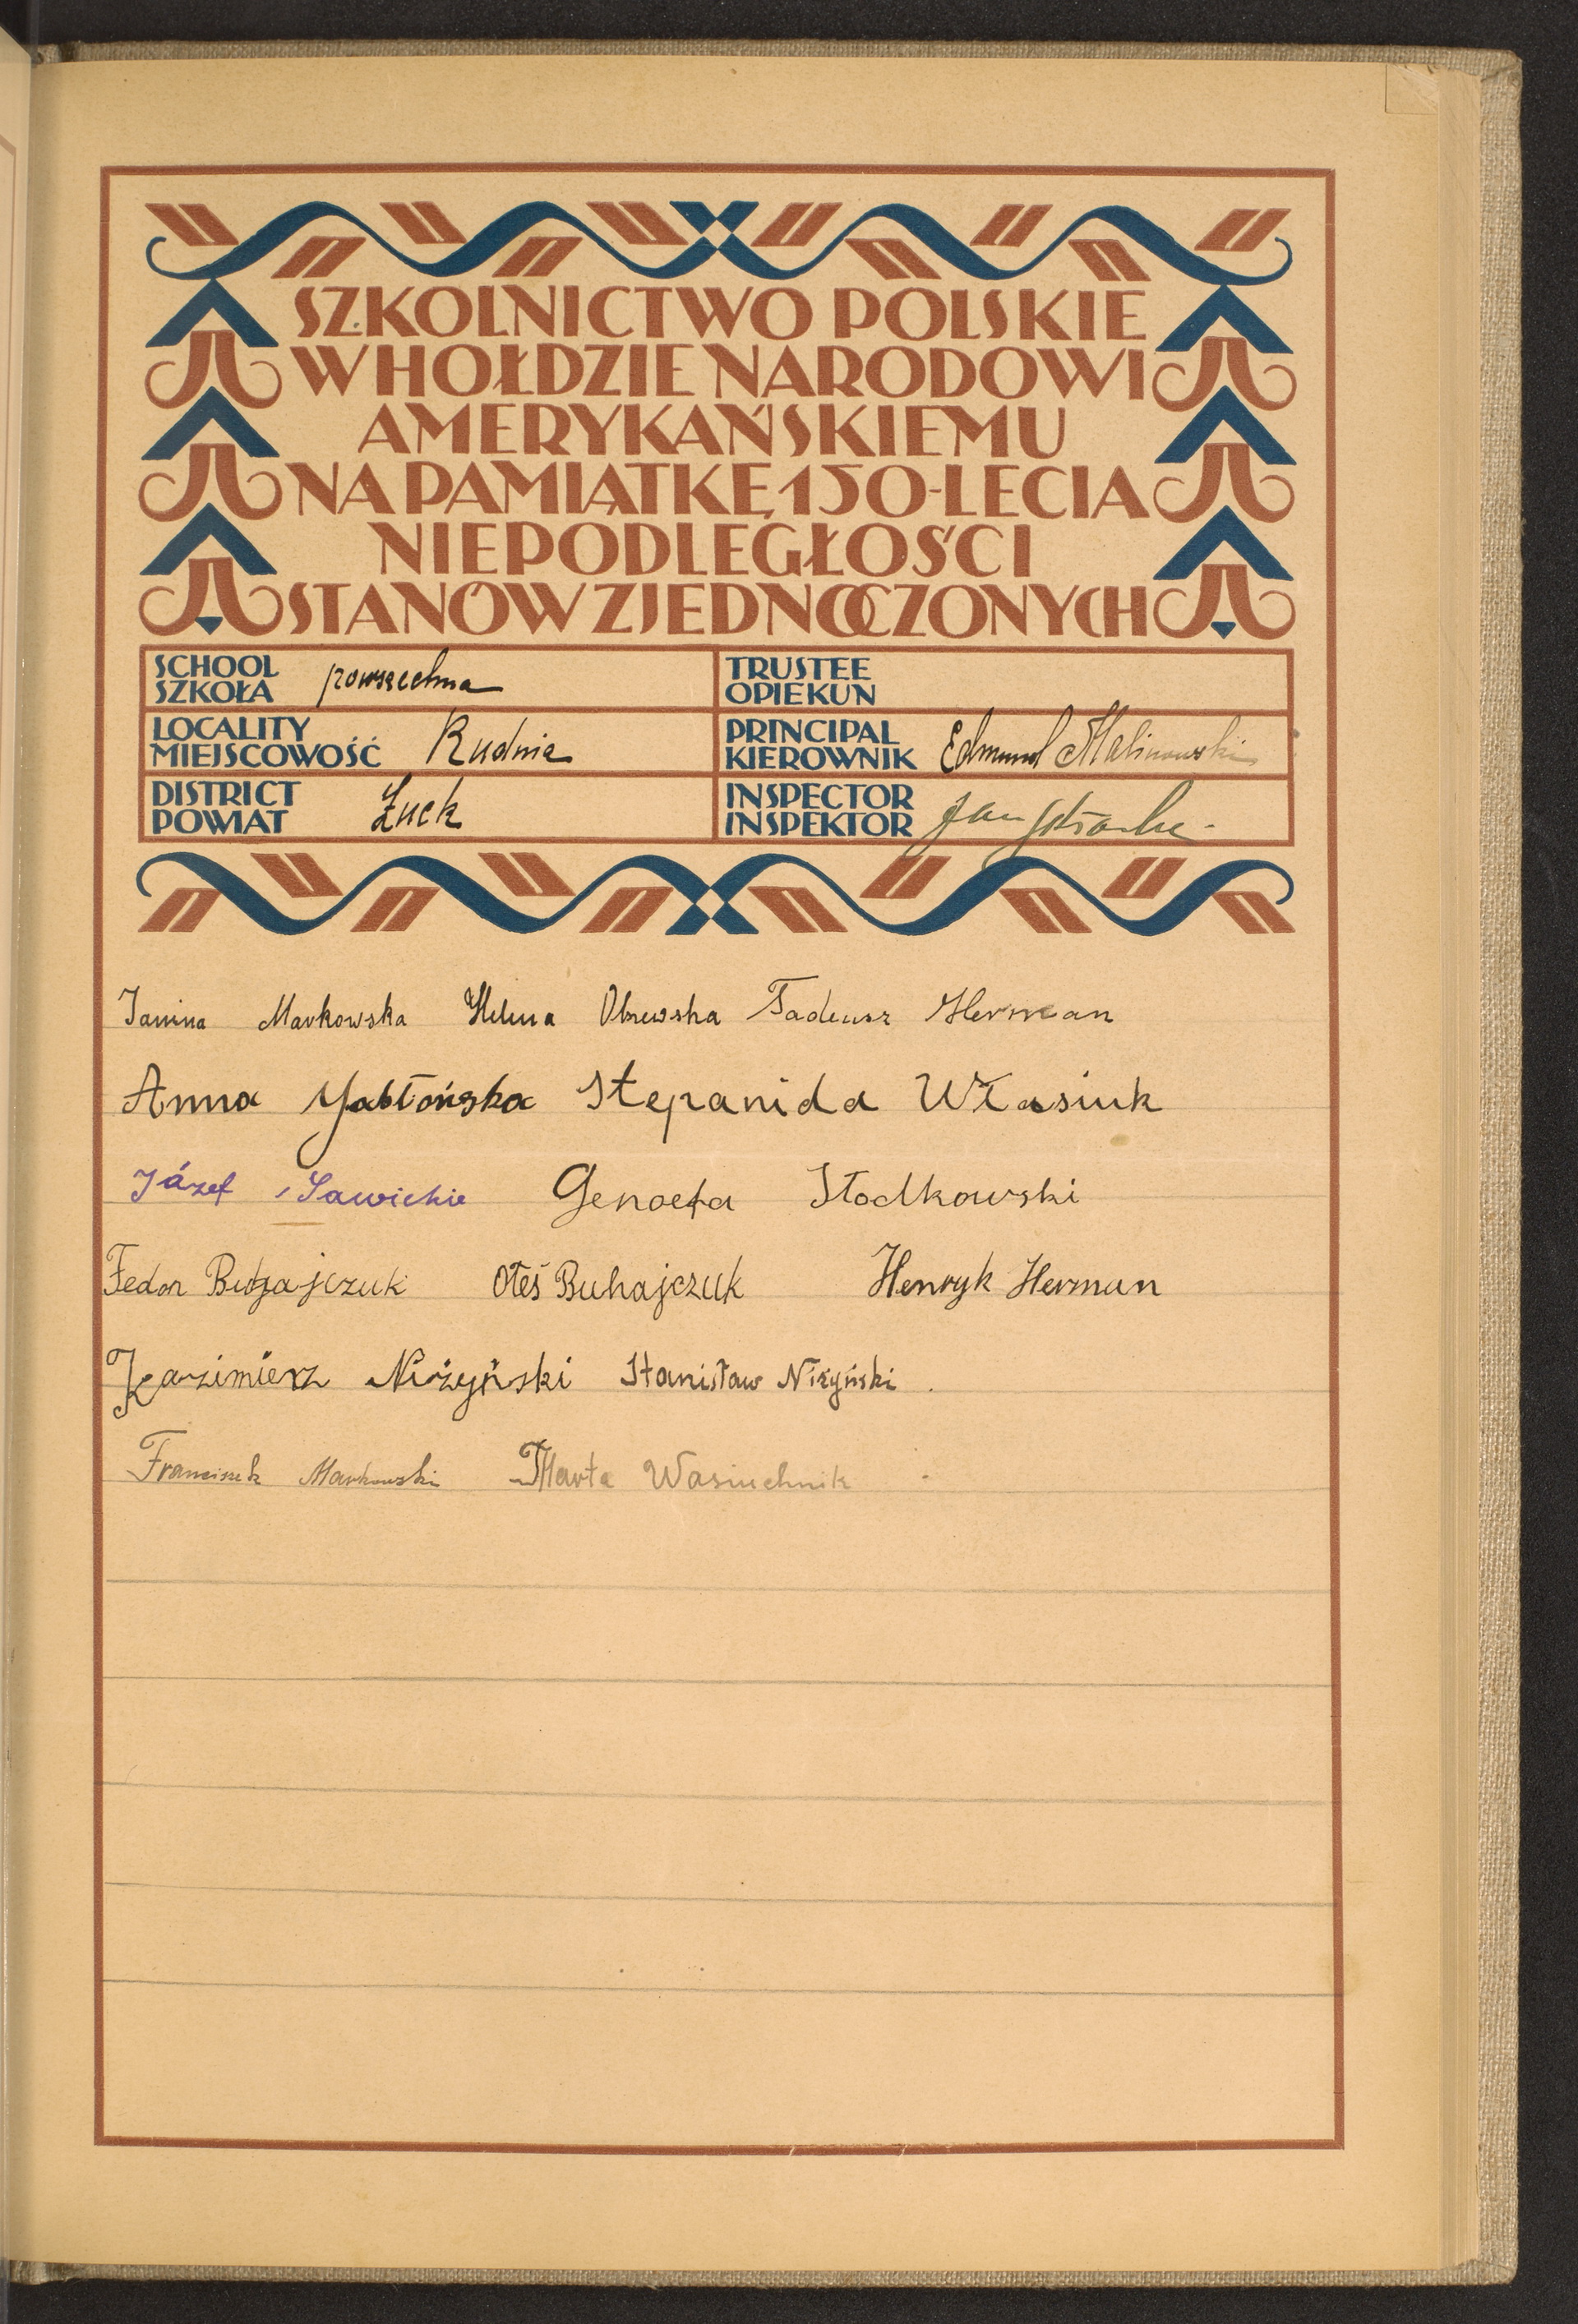 SZKOLNICTWO POLSKIE
W HOŁDZIE NARODOWI
AMERYKAŃSKIEMU
NA PAMIĄTKĘ 150-LECIA
NIEPODLEGŁOŚCI
STANÓW ZJEDNOCZONYCH
SCHOOL
SZKOŁA powszechna
TRUSTEE
OPIEKUN
LOCALITY
MIEJSCOWOŚĆ Rudnia
PRINCIPAL
KIEROWNIK Edmund Malinowski
DISTRICT
POWIAT Łuck
INSPECTOR
INSPEKTOR Jan
Janina Markowska Helena Tadeusz Herman
Anna Jabłońska Stepanida Własiuk
Józef Sawickie Genoefa Stodkowski
Fedor Buhajczuk Ołeś Buhajczuk Henryk Herman
Kazimierz Niżyński Stanisław Niżyński.
Franciszek Markowski Marta Wasiuchnik